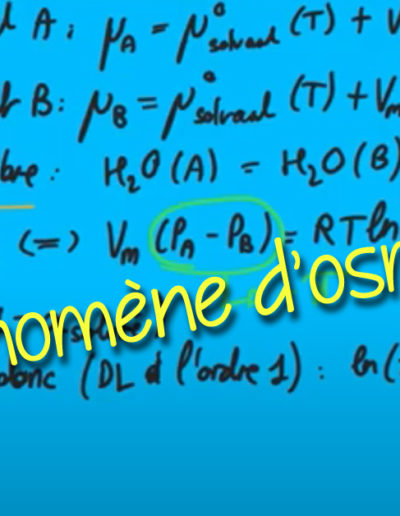 A : μA = μ°solvant (T) + V
B : μB = μ°solvant (T) + Vm
bre : H2O (A) = H2O (B)
(=) Vm (PA - PB) = RT ln
nomène d'osm
donc (DL à l'ordre 1) : ln (